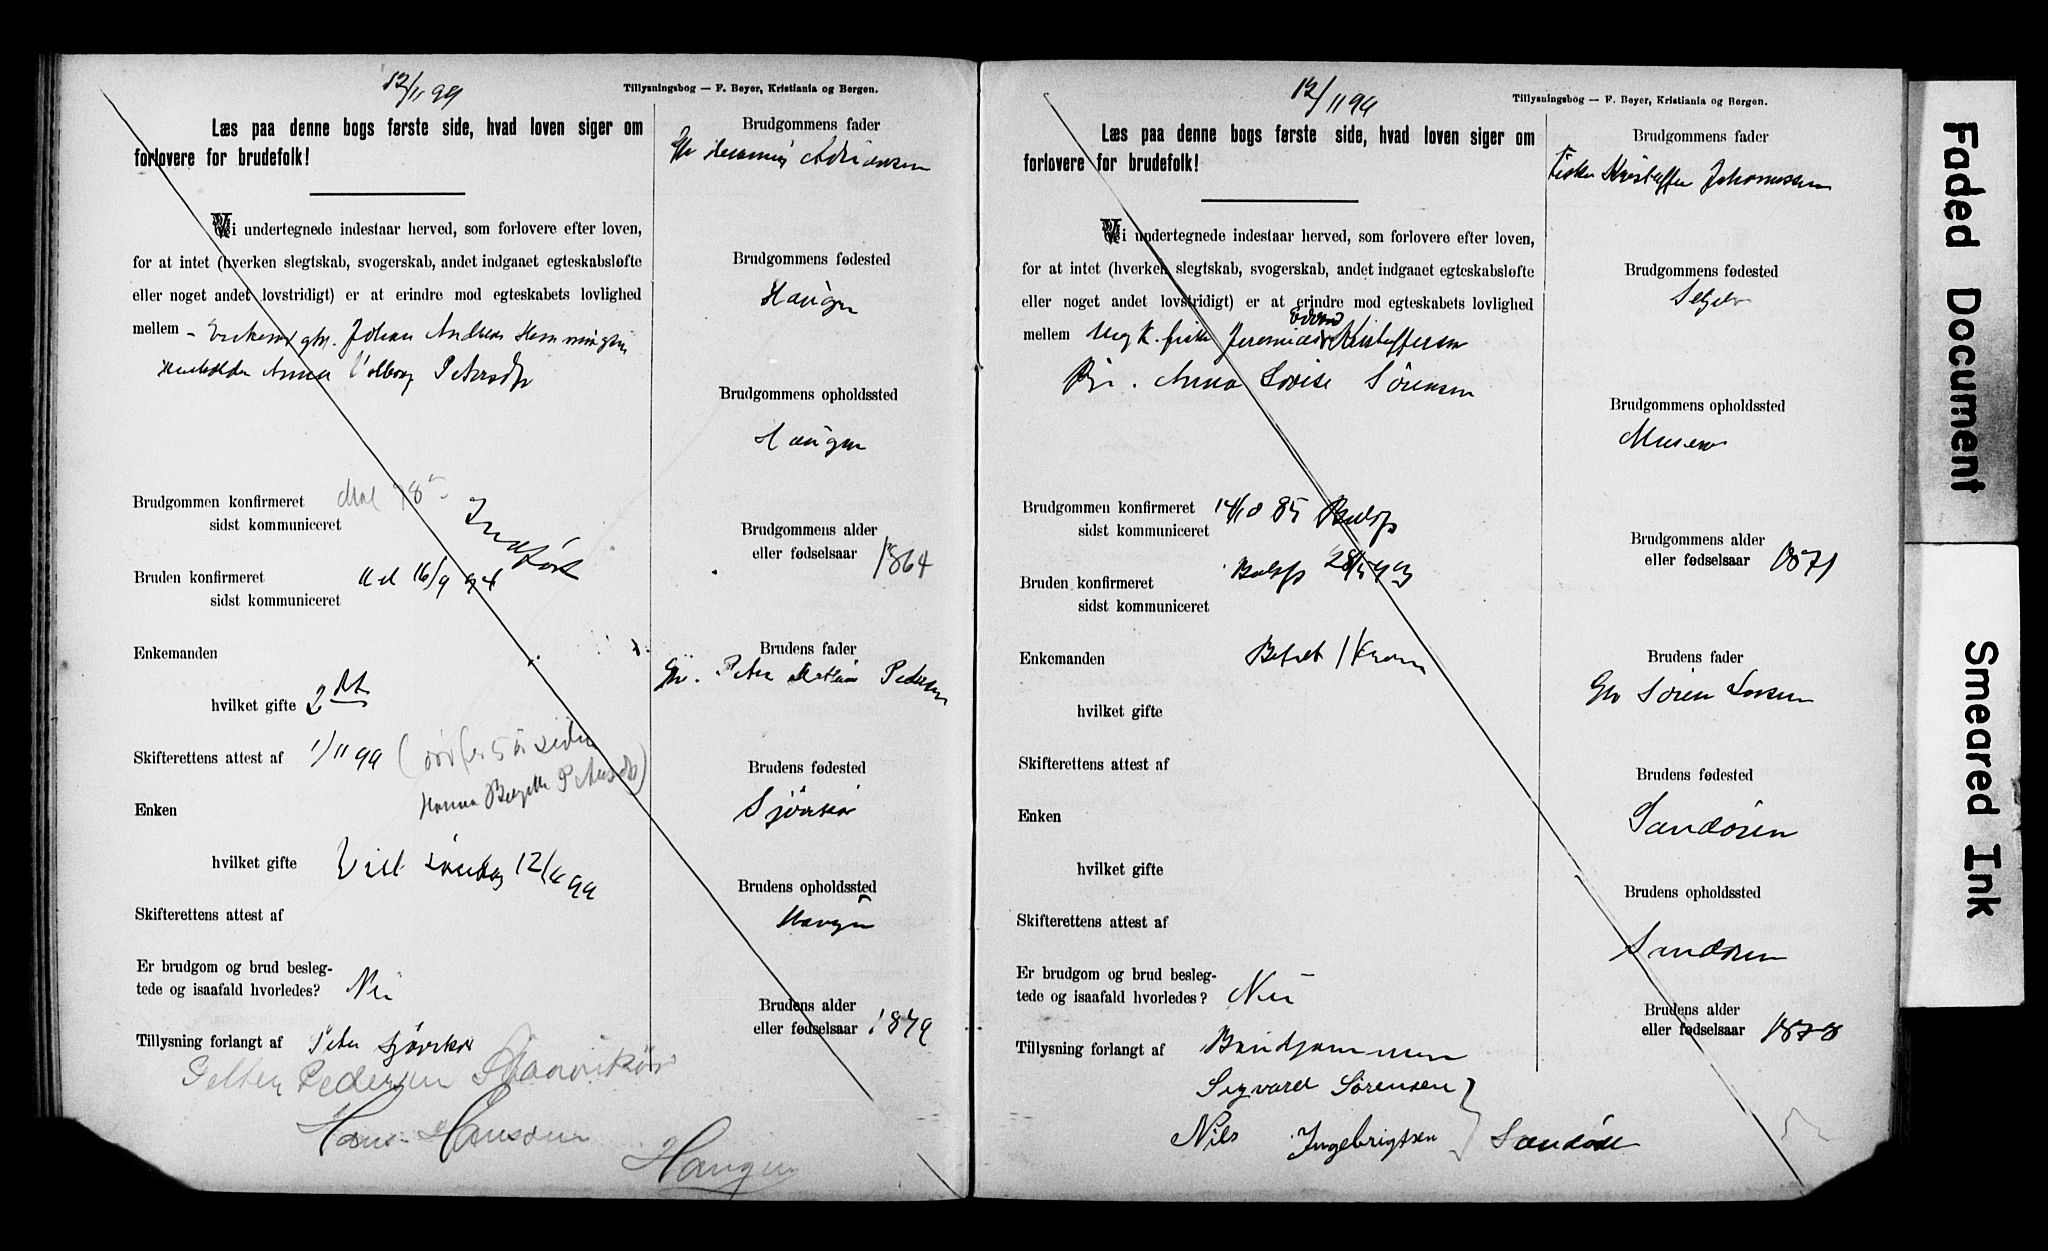 12/11 99
Tillysningsbog — F. Beyer, Kristiania og Bergen.
Læs paa denne bogs første side, hvad loven siger om
forlovere for brudefolk!
Brudgommens fader
Adriansen
Vi undertegnede indestaar herved, som forlovere efter loven,
for at intet (hverken slegtskab, svogerskab, andet indgaaet egteskabsløfte
eller noget andet lovstridigt) er at erindre mod egteskabets lovlighed
mellem Johan Andreas Hemmingsen
Anna Volborg Petersdtr
Brudgommens fødested
Haugen
Brudgommens opholdssted
Haugen
Brudgommen konfirmeret 78
sidst kommuniceret
Indført
Brudgommens alder
eller fødselsaar 1864
Bruden konfirmeret 16/9 94
sidst kommuniceret
Enkemanden
hvilket gifte 2det
Brudens fader
Peter Pedersen
Skifterettens attest af 1/11 99 (
Hanna Petersdtr)
Brudens fødested
Enken
hvilket gifte søndag 12/11 99
Brudens opholdssted
Haugen
Skifterettens attest af
Er brudgom og brud besleg-
tede og isaafald hvorledes? Nei
Brudens alder
eller fødselsaar 1879
Tillysning forlangt af Peter
Pedersen
Hans Hansen
Haugen
12/11 99
Tillysningsbog — F. Beyer, Kristiania og Bergen.
Læs paa denne bogs første side, hvad loven siger om
forlovere for brudefolk!
Brudgommens fader
Fisker Kristoffer Johannessen
Vi undertegnede indestaar herved, som forlovere efter loven,
for at intet (hverken slegtskab, svogerskab, andet indgaaet egteskabsløfte
eller noget andet lovstridigt) er at erindre mod egteskabets lovlighed
mellem Ungk. fisker Jeremias Edvard Kristoffersen
Pige Anna Lovise Sørensen
Brudgommens fødested
Brudgommens opholdssted
Brudgommen konfirmeret 14/10 85
sidst kommuniceret
Brudgommens alder
eller fødselsaar 1871
Bruden konfirmeret 93
sidst kommuniceret
Enkemanden Betalt 1 Krone
hvilket gifte
Brudens fader
Søren Larsen
Skifterettens attest af
Brudens fødested
Sandøren
Enken
hvilket gifte
Brudens opholdssted
Sandøren
Skifterettens attest af
Er brudgom og brud besleg-
tede og isaafald hvorledes? Nei
Brudens alder
eller fødselsaar 1878
Tillysning forlangt af Brudgommen
Sigvard Sørensen
Nils Ingebrigtsen
Faded Document
Smeared Ink